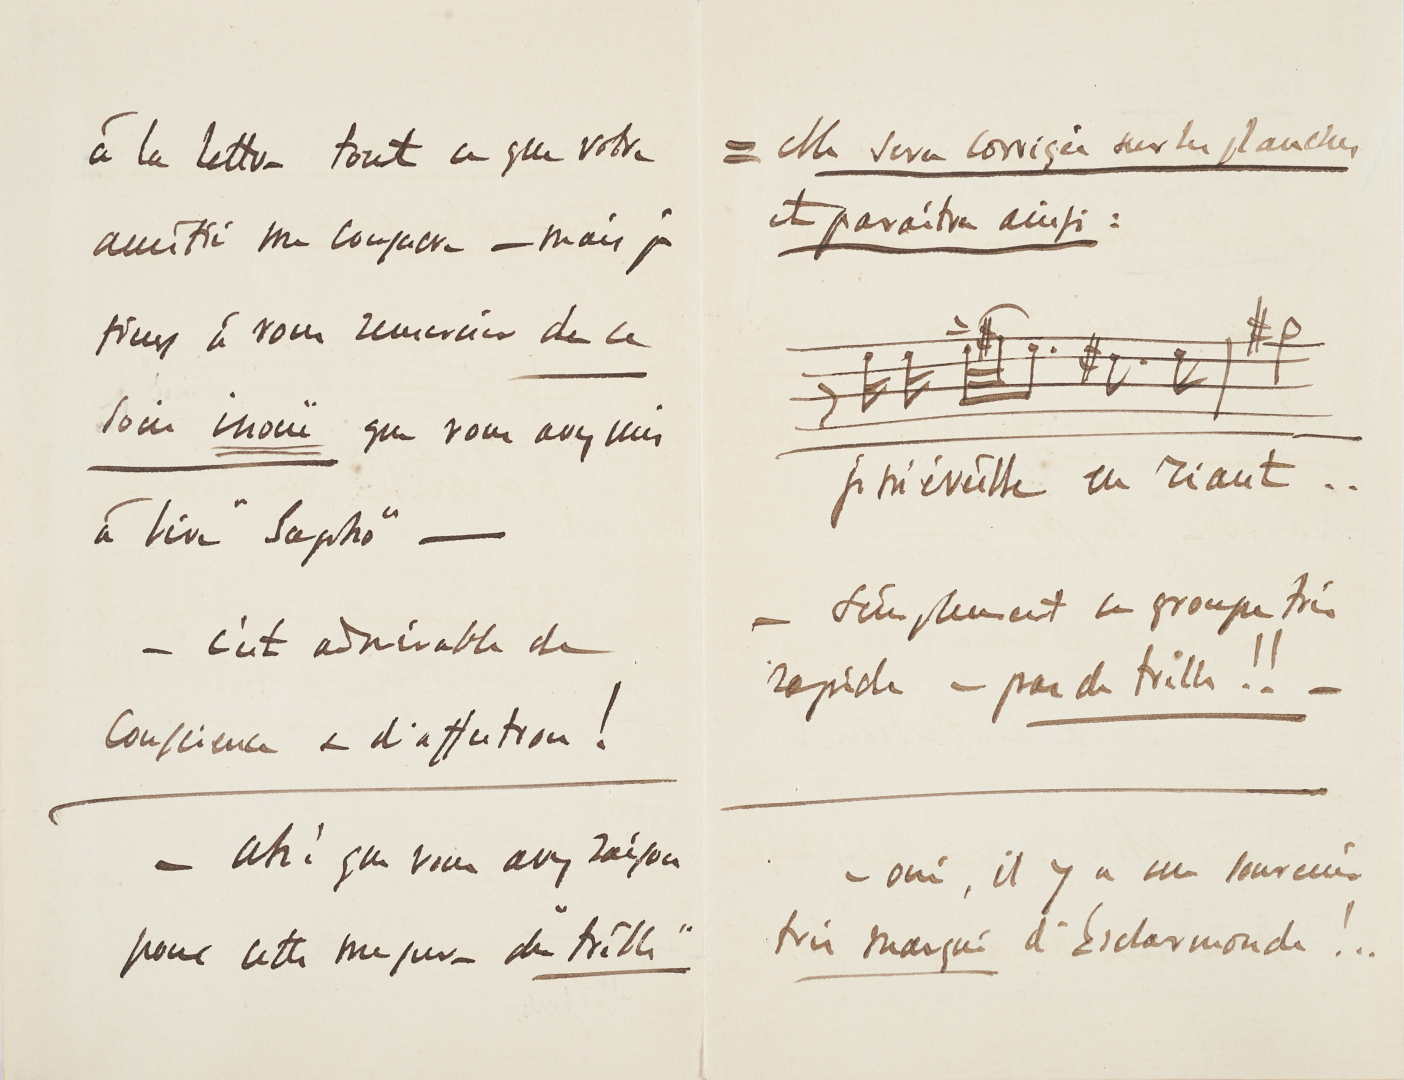 à la lettre tout ce que votre
amitié me consacre — mais je
tiens à vous remercier de ce
soin inouï que vous avez mis
à lire "Sapho" —
— c'est admirable de
conscience & d'affection !
— ah ! que vous avez raison
pour cette mesure du "trille"
= elle sera corrigée sur les planches
et paraîtra ainsi :
je m'éveille en riant ..
— Simplement ce groupe très
rapide — pas de trille !! —
— oui, il y a un souvenir
très marqué d'Esclarmonde !..